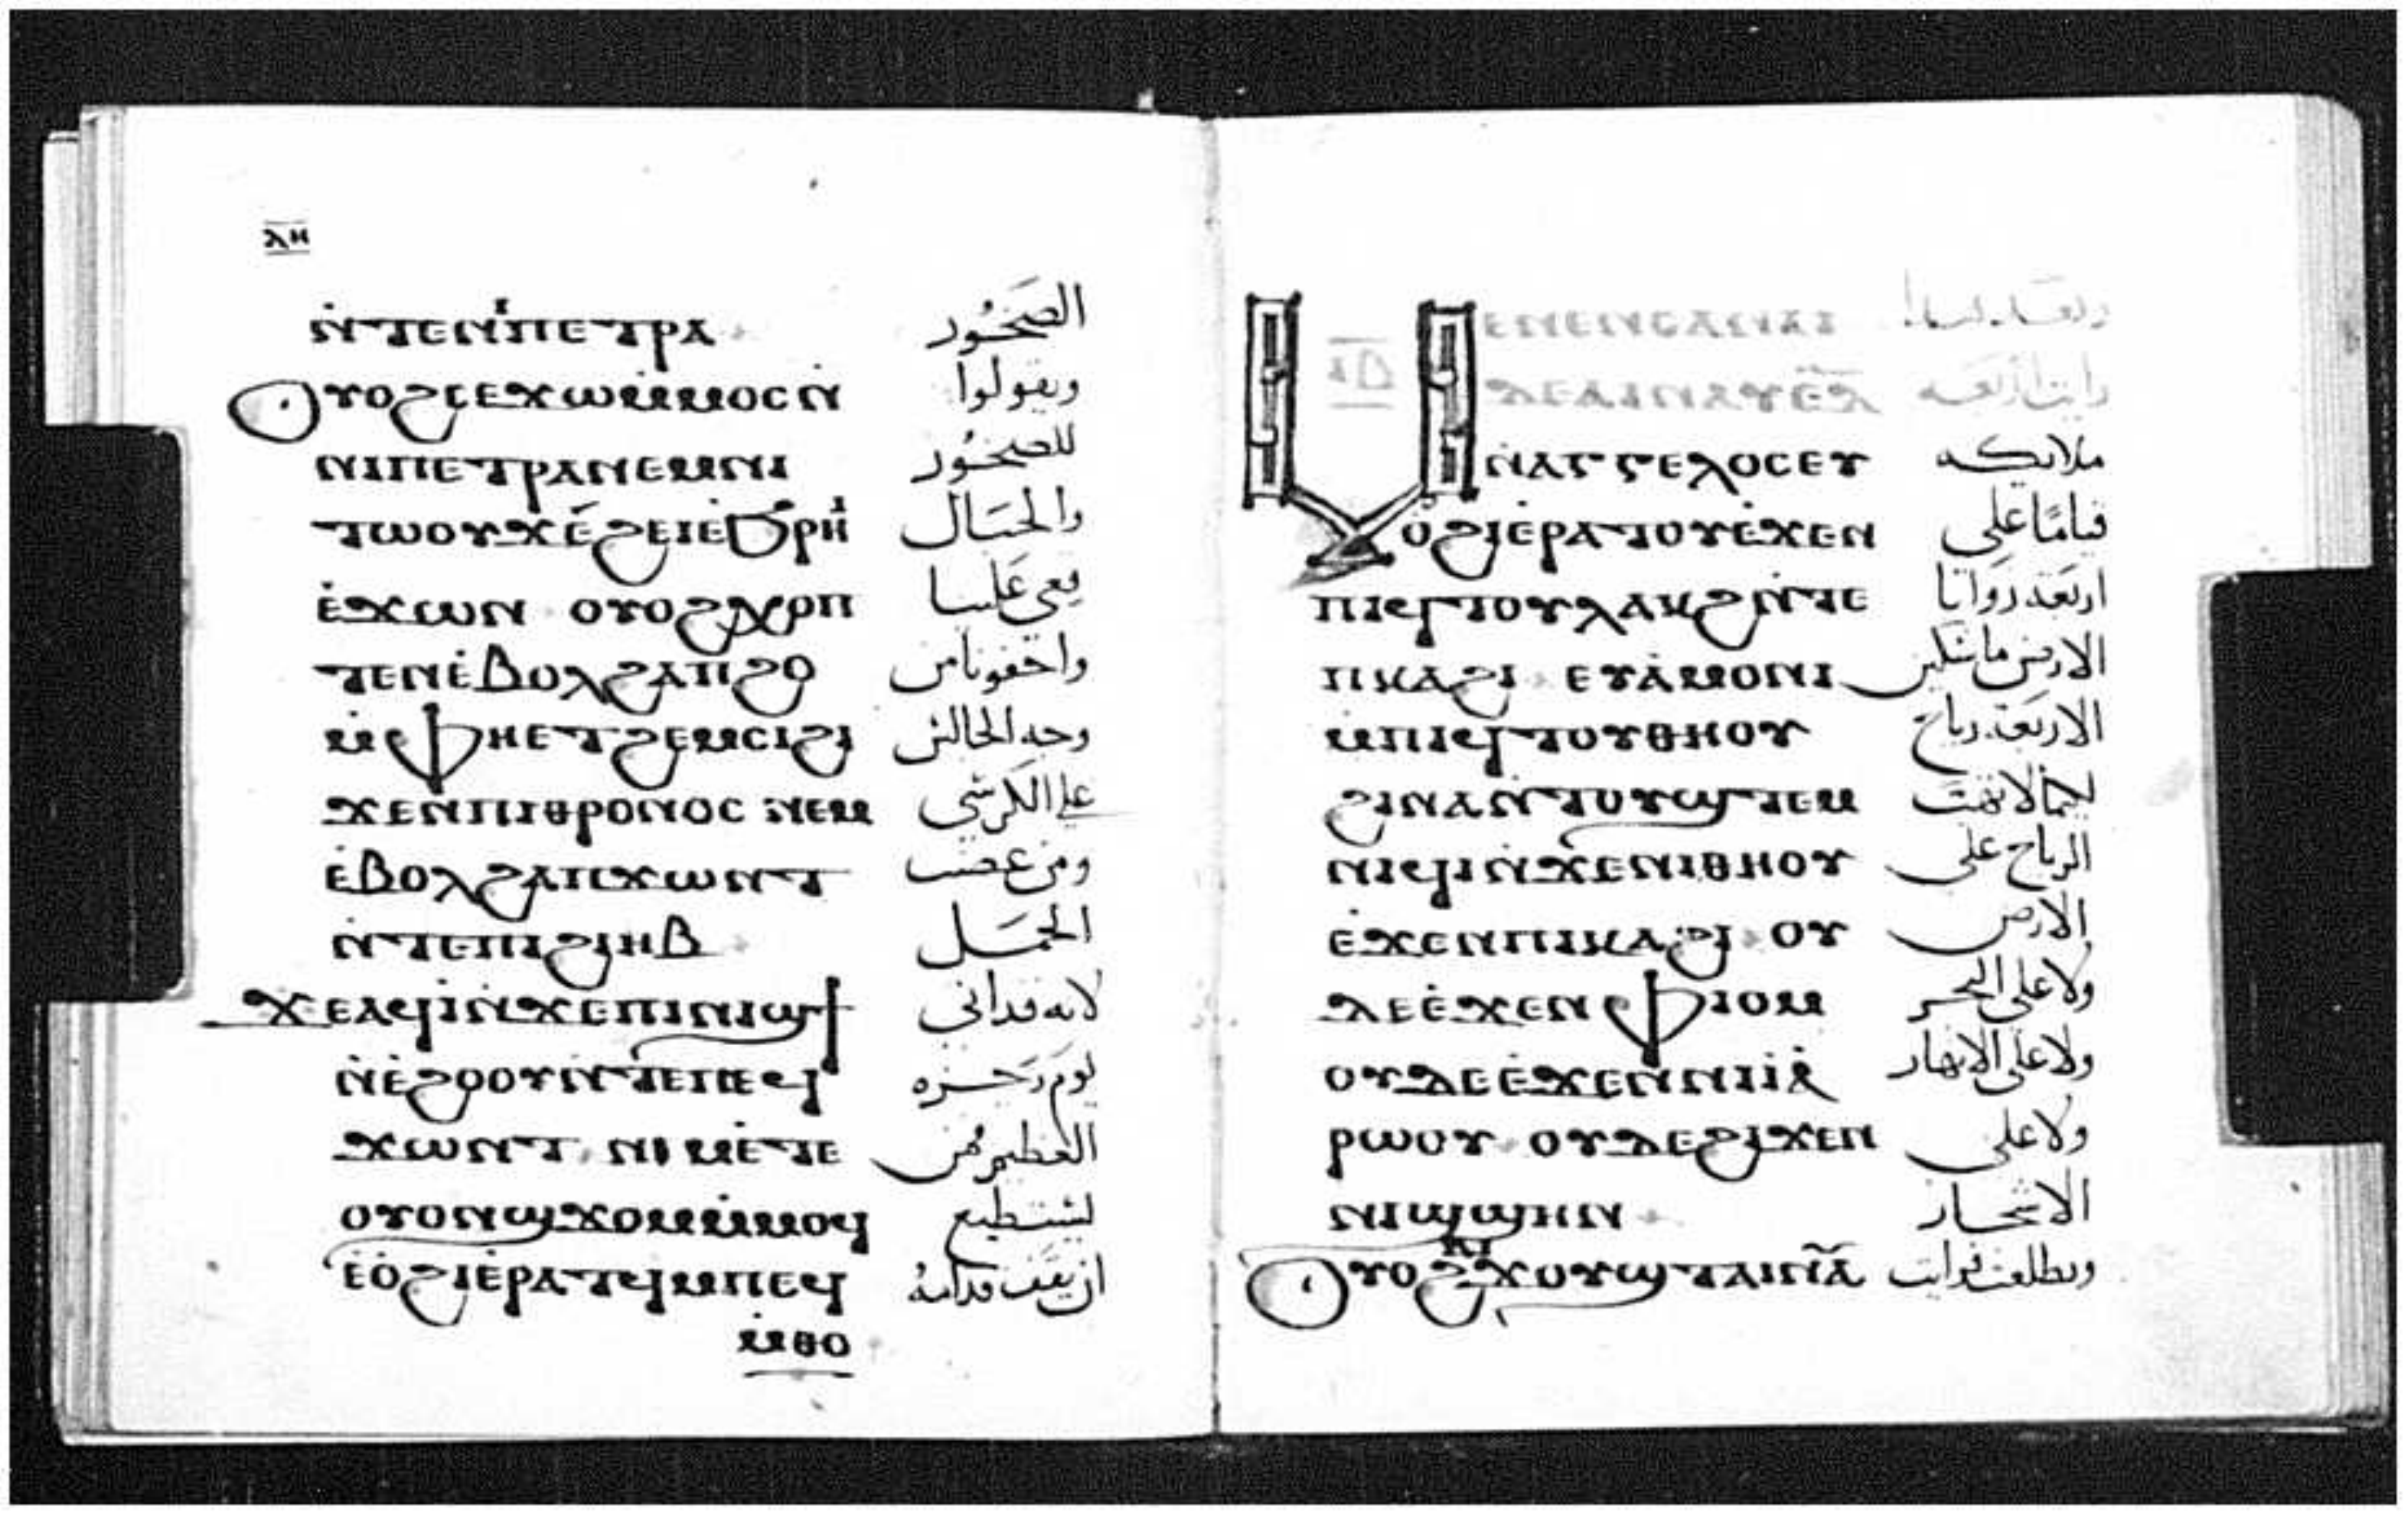 ⲗⲏ
ⲛ̇ⲧⲉⲛⲓⲡⲉⲧⲣⲁ الصَخُور
ⲟⲩⲟϩⲥⲉϫⲱⲙ̇ⲙⲟⲥⲛ̇ ويقولوا
ⲛⲓⲡⲉⲧⲣⲁⲛⲉⲙⲛⲓ للصخُور
ⲧⲱⲟⲩϫⲉ̇ϩⲉⲓⲉϧⲣⲏⲓ والجبَال
ⲉ̇ϫⲱⲛ ⲟⲩⲟϩⲭⲟⲡ قعي عَلينا
ⲧⲉⲛⲉ̇ⲃⲟⲗϩⲁⲡϩⲟ واخفونا من
ⲙ̇ⲫⲏⲉⲧϩⲉⲙⲥⲓϩⲓ وجه الجالس
ϫⲉⲛⲡⲓⲑⲣⲟⲛⲟⲥ ⲛⲉⲙ على الكرسي
ⲉ̇ⲃⲟⲗϩⲁⲡϫⲱⲛⲧ ومن غضب
ⲛ̇ⲧⲉⲡⲓϩⲓⲏⲃ الحمَل
ϫⲉⲁϥⲓ̇ⲛ̇ϫⲉⲡⲓⲛⲓϣϯ لانه قد اتى
ⲛ̇ⲉ̇ϩⲟⲟⲩⲛ̇ⲧⲉⲡⲉϥ يَوم رجزه
ϫⲱⲛⲧ ⲛⲓⲙⲉ̇ⲧⲉ العظيم فمن
ⲟⲩⲟⲛϣϫⲟⲙⲙ̇ⲙⲟϥ يستطيع
ⲉ̇ⲟ̇ϩⲓⲉ̇ⲣⲁⲧϥⲙ̇ⲡⲉϥ ان يقف قدامهُ
ⲙ̇ⲑⲟ
ⲙⲉⲛⲉⲛⲥⲁⲛⲁⲓ وبعد هذا
ⲓⲇ ⲇⲉⲁⲓⲛⲁⲩⲉ̇ⲇ̅ رايت اربعه
ⲛ̇ⲁⲅⲅⲉⲗⲟⲥⲉⲩ ملايكه
ⲟ̇ϩⲓⲉ̇ⲣⲁⲧⲟⲩⲉ̇ϫⲉⲛ قيامًا على
ⲡⲓϥⲧⲟⲩⲗⲁⲕϩⲛ̇ⲧⲉ اربَعة زوَايا
ⲡⲕⲁϩⲓ ⲉⲩⲁ̇ⲙⲟⲛⲓ الارض ماسكين
ⲙ̇ⲡⲓϥⲧⲟⲩⲑⲏⲟⲩ الاربَعة رياح
ϩⲓⲛⲁⲛ̇ⲧⲟⲩϣⲧⲉⲙ لكيما لا تهبَ
ⲛⲓϥⲓⲛ̇ϫⲉⲛⲓⲑⲏⲟⲩ الرياح على
ⲉ̇ϫⲉⲛⲡⲓⲕⲁϩⲓ ⲟⲩ الارض
ⲇⲉⲉ̇ϫⲉⲛⲫⲓⲟⲙ ولا على البحر
ⲟⲩⲇⲉⲉ̇ϫⲉⲛⲛⲓⲓ̇ⲁ̇ ولا على الانهار
ⲣⲱⲟⲩ ⲟⲩⲇⲉϩⲓϫⲉⲛ ولا على
ⲛⲓϣϣⲏⲛ الاشجار
ⲟⲩⲟϩⲁⲓϫⲟⲩϣⲧⲁⲓⲛⲁ̅ وتطلعت فرايت